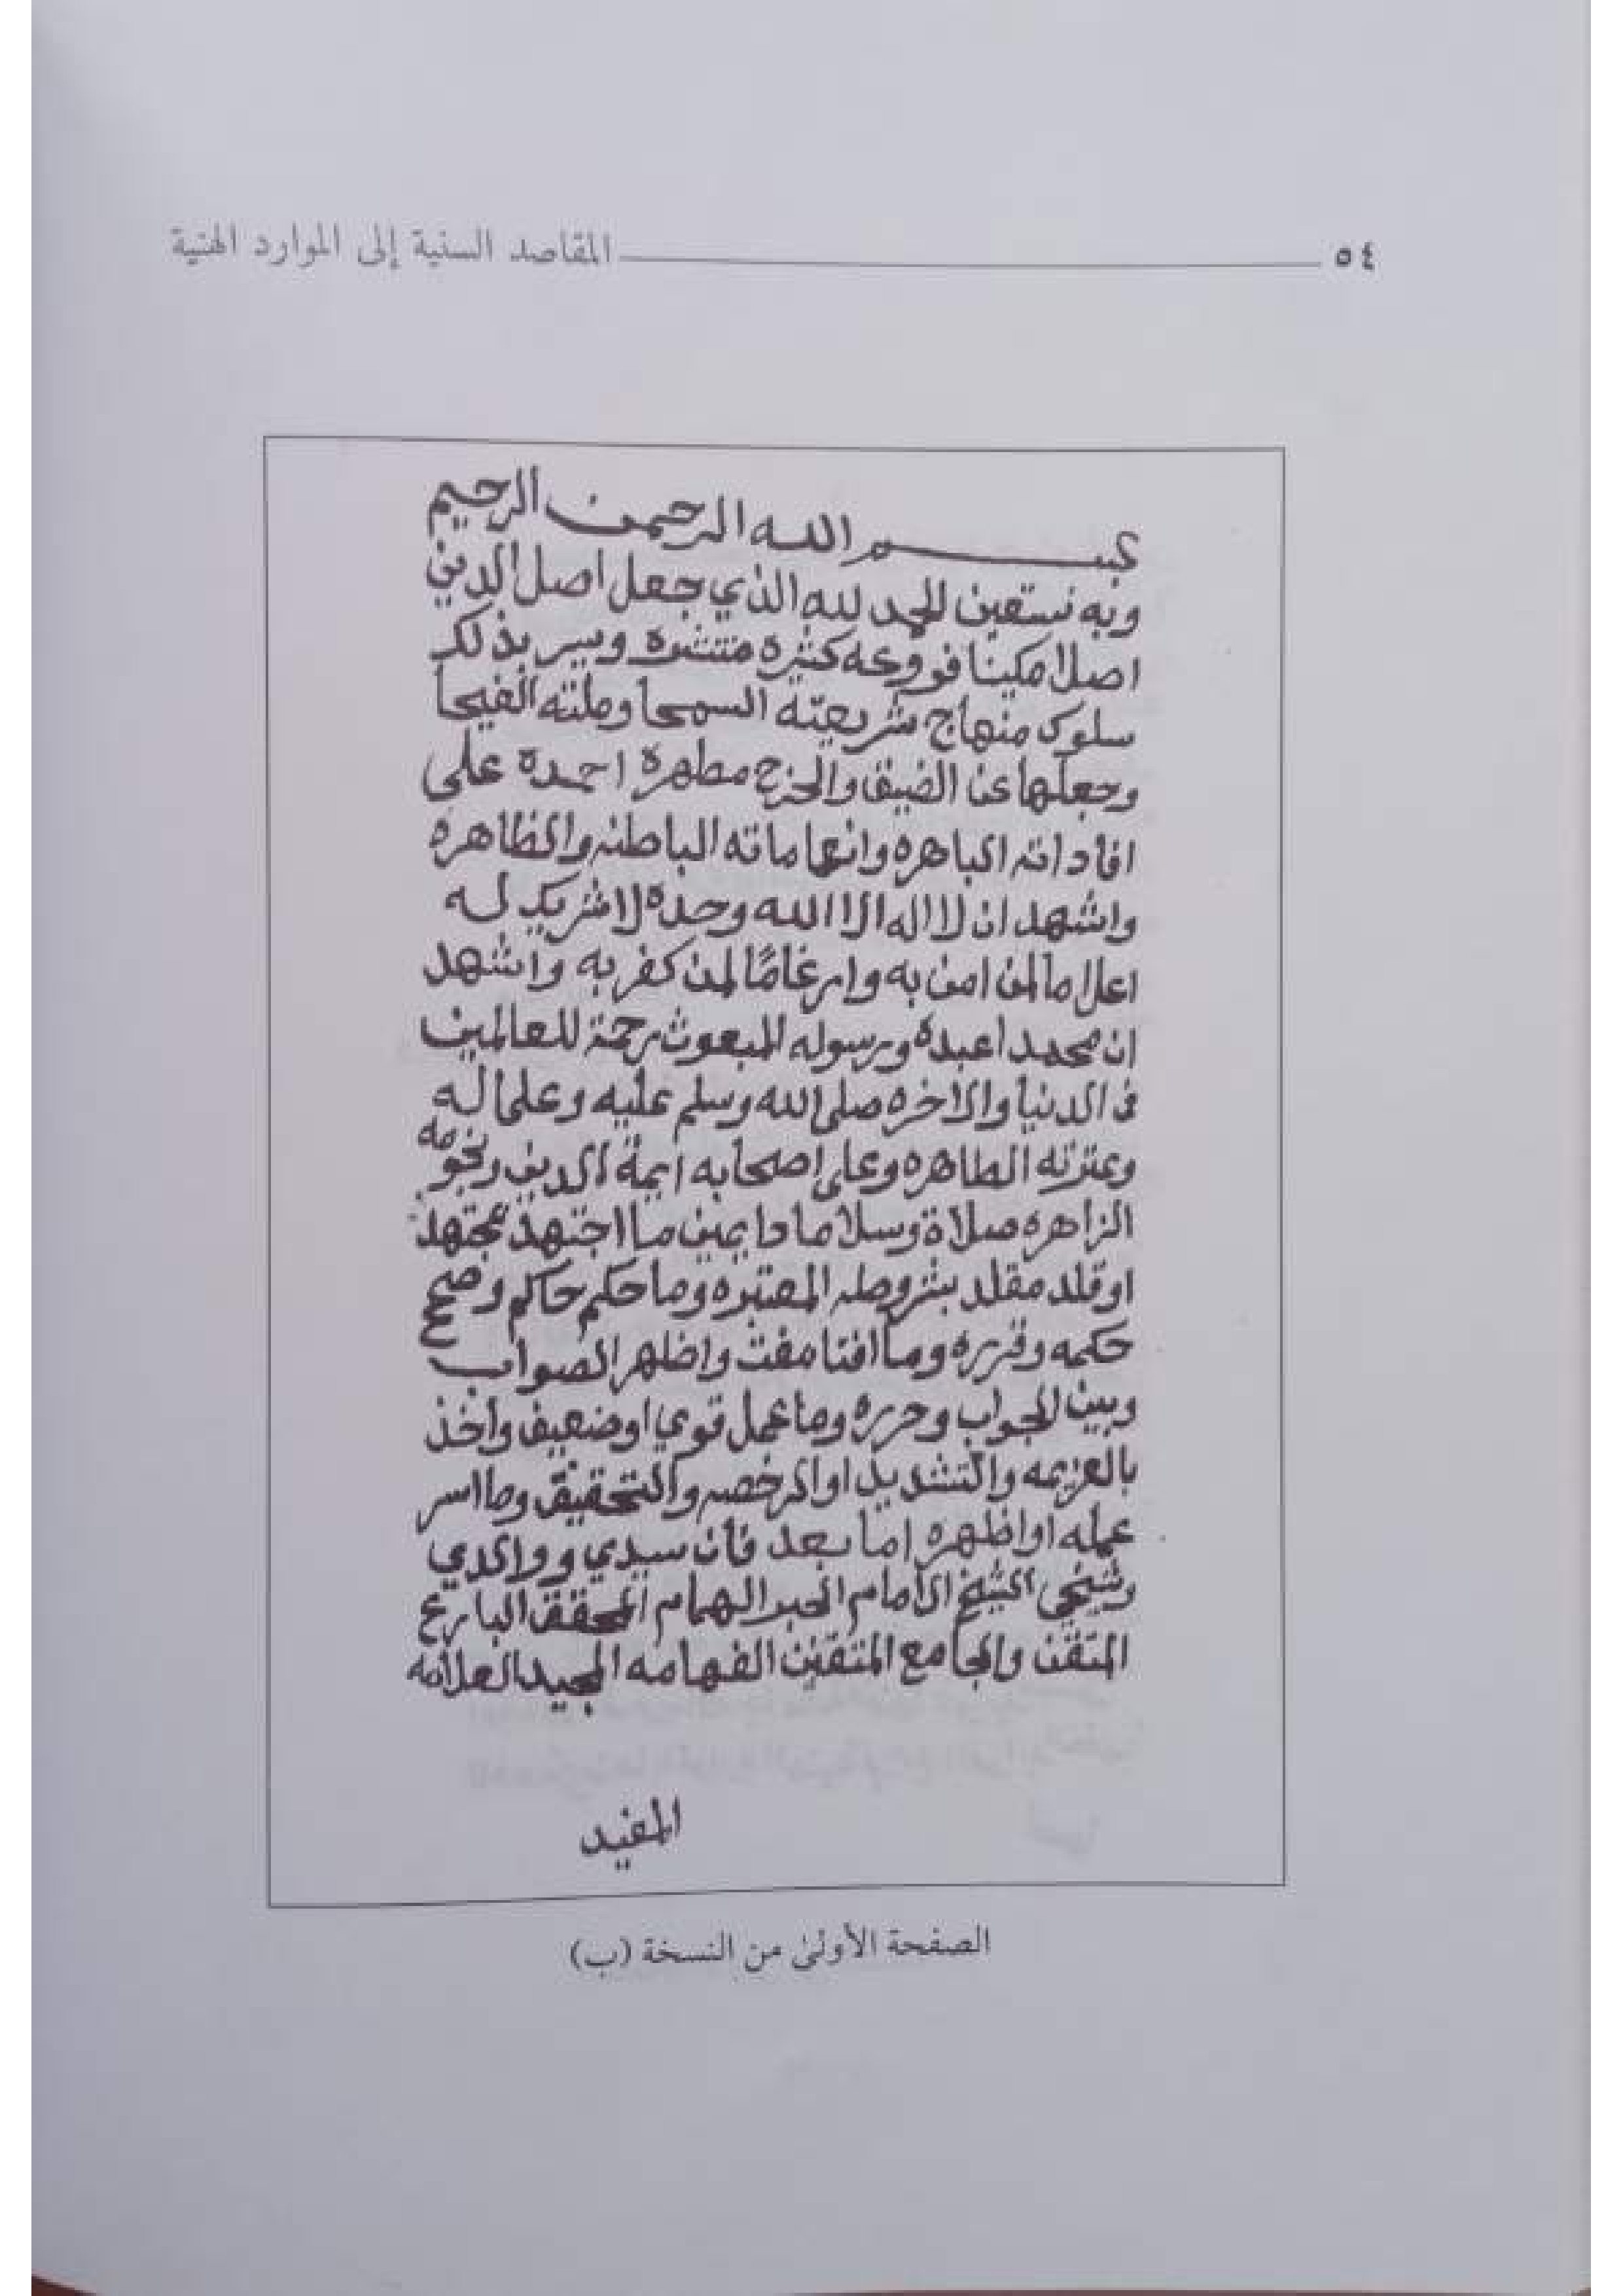 ٥٤ المقاصد السنية إلى الموارد الهنية
بسم الله الرحمن الرحيم
وبه نستعين الحمد لله الذي جعل اصل الدين
اصلا مكينا فروعه كثيره منتشره ويسر بذلك
سلوك منهاج شريعته السمحا وملته الفيحا
وجعلها عن الضيق والحرج مطهرة احمده على
افاداته الباهره وانعاماته الباطنه والظاهره
واشهد ان لا اله الا الله وحده لا شريك له
اعلاما لمن امن به وارغامًا لمن كفر به واشهد
ان محمدا عبده ورسوله المبعوث رحمة للعالمين
في الدنيا والاخره صلى الله وسلم عليه وعلى اله
وعترته الطاهره وعلى اصحابه ايمة الدين ونجومه
الزاهره صلاة وسلاما دايمين ما اجتهد مجتهد
او قلد مقلد بشروطه المعتبره وما حكم حاكم وصحح
حكمه وقرره وما افتا مفت واظهر الصواب
وبين الجواب وحرره وما عمل قوي او ضعيف واخذ
بالعزيمه والتشديد او الرخصه والتخفيف وما اسر
عمله او اظهره اما بعد فان سيدي ووالدي
وشيخي الشيخ الامام الحبر الهمام المحقق البارع
المتقن والجامع المتفنن الفهامه المجيد العلامه
المفيد
الصفحة الأولىٰ من النسخة (ب)